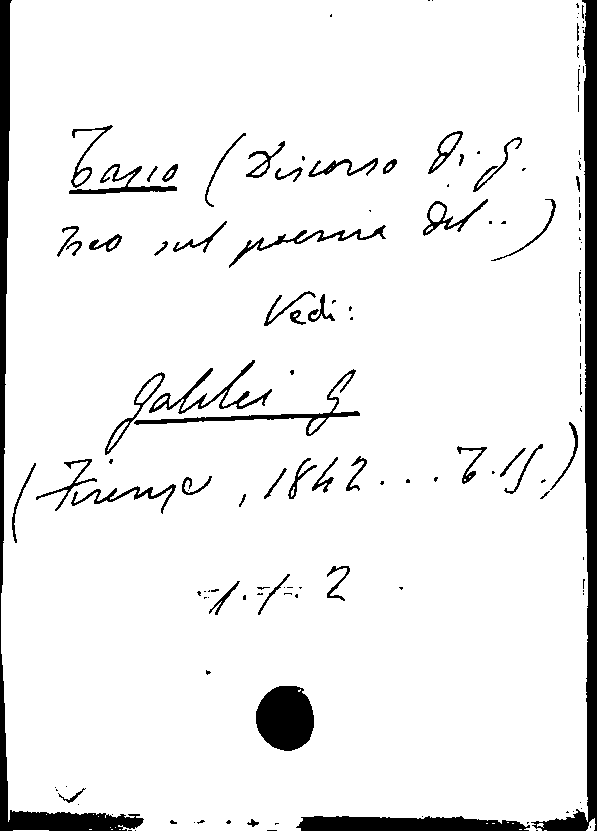 Tasso (Discorso di G.
sul poema del..)
Vedi:
Galilei G
(Firenze, 1842... T.15.)
1.1.2